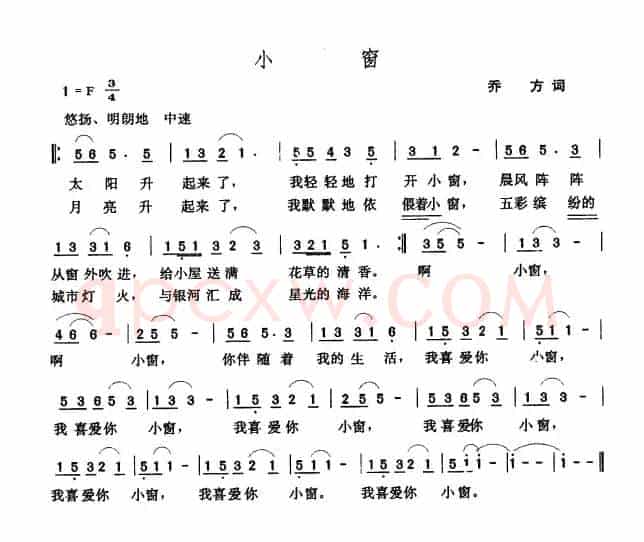 小 窗
1=F 3/4
乔 方 词
悠扬、明朗地 中速
5 6 5· 5 | 1 3 2 1· | 5 5 4 3 5 | 3 1 2 - | 5 6 5· 3 |
太 阳 升 起来了, 我轻轻地打 开小窗, 晨风阵阵
月 亮 升 起来了, 我默默地依 偎着小窗, 五彩缤 纷的
1 3 3 1 6 | 1 5 1 3 2 3 | 3 2 1 5 1· :‖ 3 5 5 - | 1 3 3 - |
从窗外吹进, 给小屋送满 花草的清香。 啊 小窗,
城市灯 火, 与银河汇成 星光的海洋。
qpcxw.COM
4 6 6 - | 2 5 5 - | 5 6 5· 3 | 1 3 3 1 6 | 1 5 3 2 1 | 5 1 1 - |
啊 小窗, 你伴随着 我的生 活, 我喜爱你 小窗,
5 3 6 5 3 | 1 3 3 - | 1 5 3 2 1 | 5 1 1 - | 5 3 6 5 3 | 1 3 3 - |
我喜爱你 小窗, 我喜爱你 小窗, 我喜爱你 小窗,
1 5 3 2 1 | 5 1 1 - | 1 5 3 2 1 | 5 1 1 - | 1 5 3 2 1 | 5 i i - | i - - | i - - ‖
我喜爱你 小窗, 我喜爱你 小窗。 我喜爱你 小窗。